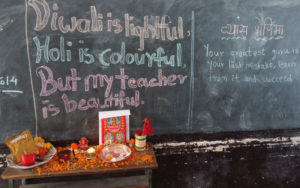 Diwali is lightful,
Holi is colourful,
But my teacher
is beautiful.
व्यास पौर्णिमा
Your greatest guru is
Your last mistake, learn
from it and succeed